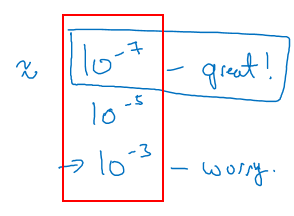 ≈ 10^-7 - great!
10^-5
→ 10^-3 - worry.